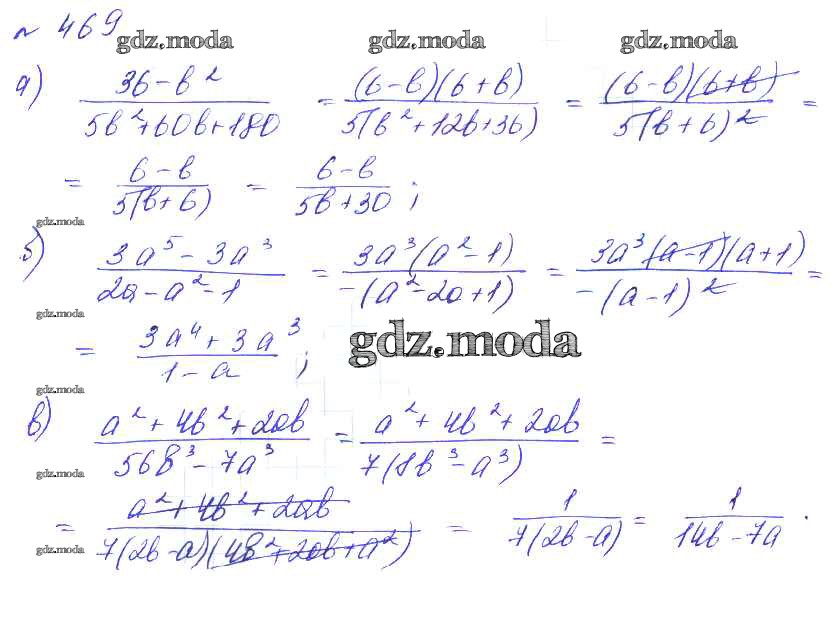 № 469
gdz.moda gdz.moda gdz.moda
а) (36 - b²)/(5b² + 60b + 180) = ((6 - b)(6 + b))/(5(b² + 12b + 36)) = ((6 - b)(6 + b))/(5(b + 6)²) =
= (6 - b)/(5(b + 6)) = (6 - b)/(5b + 30) ;
gdz.moda
б) (3a⁵ - 3a³)/(2a - a² - 1) = (3a³(a² - 1))/(-(a² - 2a + 1)) = (3a³(a - 1)(a + 1))/(-(a - 1)²) =
gdz.moda
= (3a⁴ + 3a³)/(1 - a) ;
gdz.moda
gdz.moda
в) (a² + 4b² + 2ab)/(56b³ - 7a³) = (a² + 4b² + 2ab)/(7(8b³ - a³)) =
gdz.moda
= (a² + 4b² + 2ab)/(7(2b - a)(4b² + 2ab + a²)) = 1/(7(2b - a)) = 1/(14b - 7a) .
gdz.moda